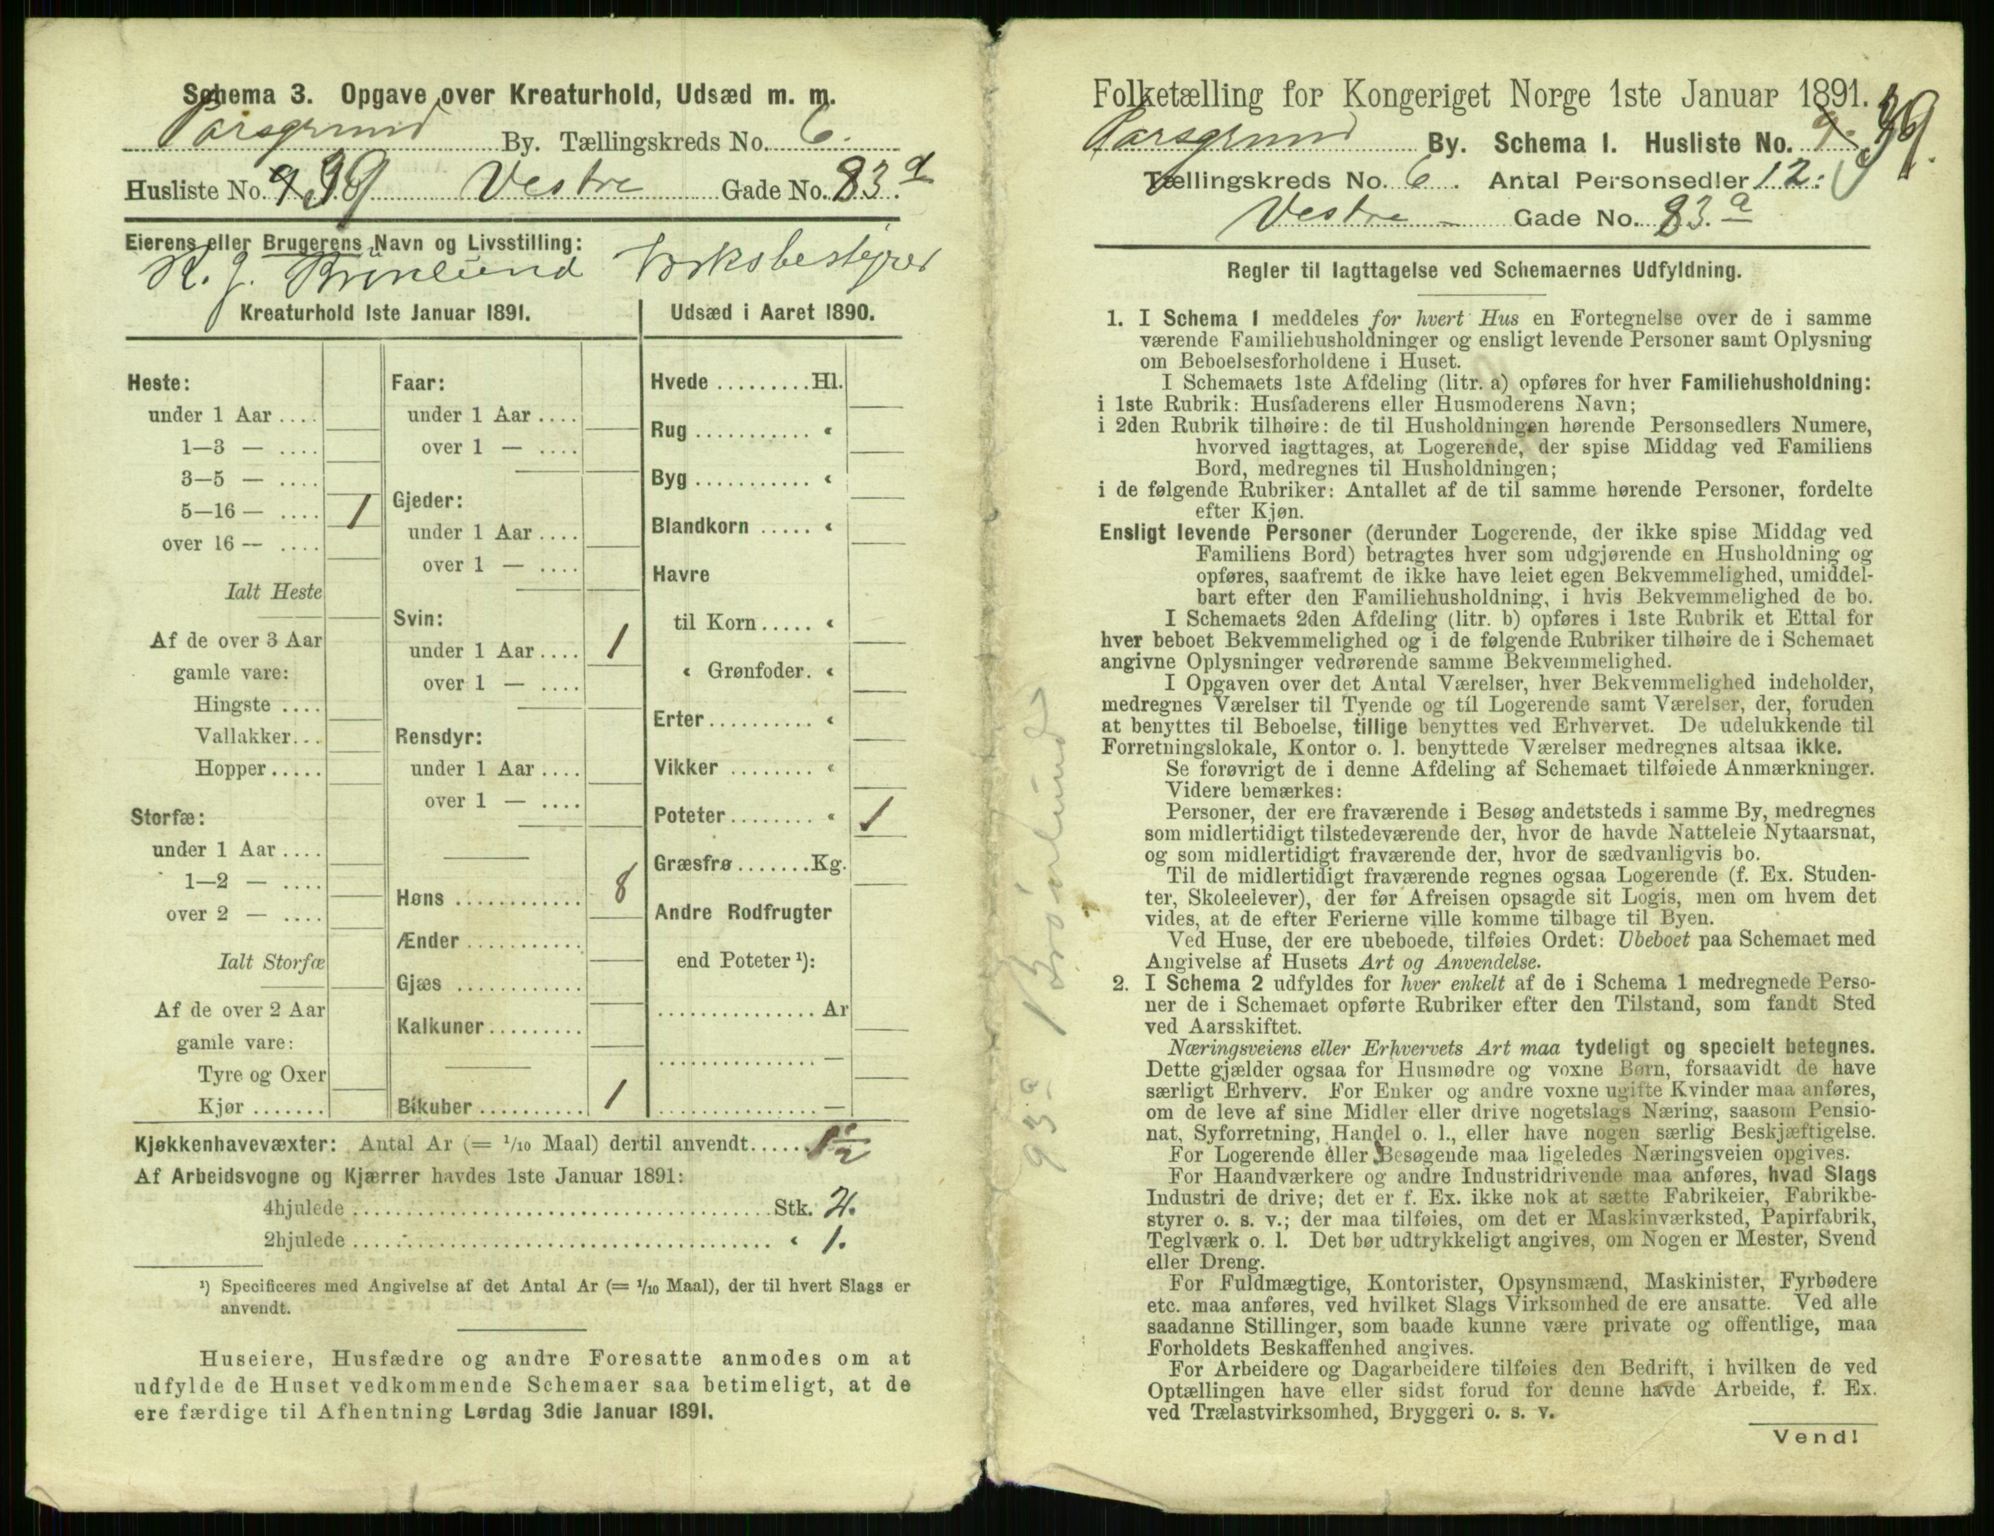 Schema 3. Opgave over Kreaturhold, Udsæd m. m.
Porsgrund By. Tællingskreds No. 6.
Husliste No. 9 39 Vestre Gade No. 83.a
Eierens eller Brugerens Navn og Livsstilling:
K. J. Brünlund
Kreaturhold 1ste Januar 1891.
Heste:
under 1 Aar ....
1—3 — ....
3—5 — ....
5—16 — .... 1
over 16 — ....
Ialt Heste
Af de over 3 Aar
gamle vare:
Hingste ....
Vallakker...
Hopper.....
Storfæ:
under 1 Aar ....
1—2 — ....
over 2 — ....
Ialt Storfæ
Af de over 2 Aar
gamle vare:
Tyre og Oxer
Kjør .......
Faar:
under 1 Aar ....
over 1 — ....
Gjeder:
under 1 Aar ....
over 1 — ....
Svin:
under 1 Aar .... 1
over 1 — ....
Rensdyr:
under 1 Aar ....
over 1 — ....
Høns ............ 8
Ænder ...........
Gjæs ............
Kalkuner.........
Bikuber .......... 1
Udsæd i Aaret 1890.
Hvede .........Hl.
Rug ........... "
Byg ........... "
Blandkorn ..... "
Havre
til Korn..... "
" Grønfoder. "
Erter.......... "
Vikker ........ "
Poteter........ " 1
Græsfrø .......Kg.
Andre Rodfrugter
end Poteter ¹):
............... Ar
............... —
............... —
Kjøkkenhavevæxter: Antal Ar (= 1/10 Maal) dertil anvendt...... 1 1/2
Af Arbeidsvogne og Kjærrer havdes 1ste Januar 1891:
4hjulede ........................................Stk. 2.
2hjulede ........................................ " 1.
¹) Specificeres med Angivelse af det Antal Ar (= 1/10 Maal), der til hvert Slags er
anvendt.
Huseiere, Husfædre og andre Foresatte anmodes om at
udfylde de Huset vedkommende Schemaer saa betimeligt, at de
ere færdige til Afhentning Lørdag 3die Januar 1891.
Folketælling for Kongeriget Norge 1ste Januar 1891.
Porsgrund By. Schema 1. Husliste No. 9. 39.
Tællingskreds No. 6. Antal Personsedler 12.
Vestre Gade No. 83.a
Regler til Iagttagelse ved Schemaernes Udfyldning.
1. I Schema 1 meddeles for hvert Hus en Fortegnelse over de i samme
værende Familiehusholdninger og ensligt levende Personer samt Oplysning
om Beboelsesforholdene i Huset.
I Schemaets 1ste Afdeling (litr. a) opføres for hver Familiehusholdning:
i 1ste Rubrik: Husfaderens eller Husmoderens Navn;
i 2den Rubrik tilhøire: de til Husholdningen hørende Personsedlers Numere,
hvorved iagttages, at Logerende, der spise Middag ved Familiens
Bord, medregnes til Husholdningen;
i de følgende Rubriker: Antallet af de til samme hørende Personer, fordelte
efter Kjøn.
Ensligt levende Personer (derunder Logerende, der ikke spise Middag ved
Familiens Bord) betragtes hver som udgjørende en Husholdning og
opføres, saafremt de ikke have leiet egen Bekvemmelighed, umiddel-
bart efter den Familiehusholdning, i hvis Bekvemmelighed de bo.
I Schemaets 2den Afdeling (litr. b) opføres i 1ste Rubrik et Ettal for
hver beboet Bekvemmelighed og i de følgende Rubriker tilhøire de i Schemaet
angivne Oplysninger vedrørende samme Bekvemmelighed.
I Opgaven over det Antal Værelser, hver Bekvemmelighed indeholder,
medregnes Værelser til Tyende og til Logerende samt Værelser, der, foruden
at benyttes til Beboelse, tillige benyttes ved Erhvervet. De udelukkende til
Forretningslokale, Kontor o. l. benyttede Værelser medregnes altsaa ikke.
Se forøvrigt de i denne Afdeling af Schemaet tilføiede Anmærkninger.
Videre bemærkes:
Personer, der ere fraværende i Besøg andetsteds i samme By, medregnes
som midlertidigt tilstedeværende der, hvor de havde Natteleie Nytaarsnat,
og som midlertidigt fraværende der, hvor de sædvanligvis bo.
Til de midlertidigt fraværende regnes ogsaa Logerende (f. Ex. Studen-
ter, Skoleelever), der før Afreisen opsagde sit Logis, men om hvem det
vides, at de efter Ferierne ville komme tilbage til Byen.
Ved Huse, der ere ubeboede, tilføies Ordet: Ubeboet paa Schemaet med
Angivelse af Husets Art og Anvendelse.
2. I Schema 2 udfyldes for hver enkelt af de i Schema 1 medregnede Perso-
ner de i Schemaet opførte Rubriker efter den Tilstand, som fandt Sted
ved Aarsskiftet.
Næringsveiens eller Erhvervets Art maa tydeligt og specielt betegnes.
Dette gjælder ogsaa for Husmødre og voxne Børn, forsaavidt de have
særligt Erhverv. For Enker og andre voxne ugifte Kvinder maa anføres,
om de leve af sine Midler eller drive nogetslags Næring, saasom Pensio-
nat, Syforretning, Handel o. l., eller have nogen særlig Beskjæftigelse.
For Logerende eller Besøgende maa ligeledes Næringsveien opgives.
For Haandværkere og andre Industridrivende maa anføres, hvad Slags
Industri de drive; det er f. Ex. ikke nok at sætte Fabrikeier, Fabrikbe-
styrer o. s. v.; der maa tilføies, om det er Maskinværksted, Papirfabrik,
Teglværk o. l. Det bør udtrykkeligt angives, om Nogen er Mester, Svend
eller Dreng.
For Fuldmægtige, Kontorister, Opsynsmænd, Maskinister, Fyrbødere
etc. maa anføres, ved hvilket Slags Virksomhed de ere ansatte. Ved alle
saadanne Stillinger, som baade kunne være private og offentlige, maa
Forholdets Beskaffenhed angives.
For Arbeidere og Dagarbeidere tilføies den Bedrift, i hvilken de ved
Optællingen have eller sidst forud for denne havde Arbeide, f. Ex.
ved Trælastvirksomhed, Bryggeri o. s. v.
Vend!